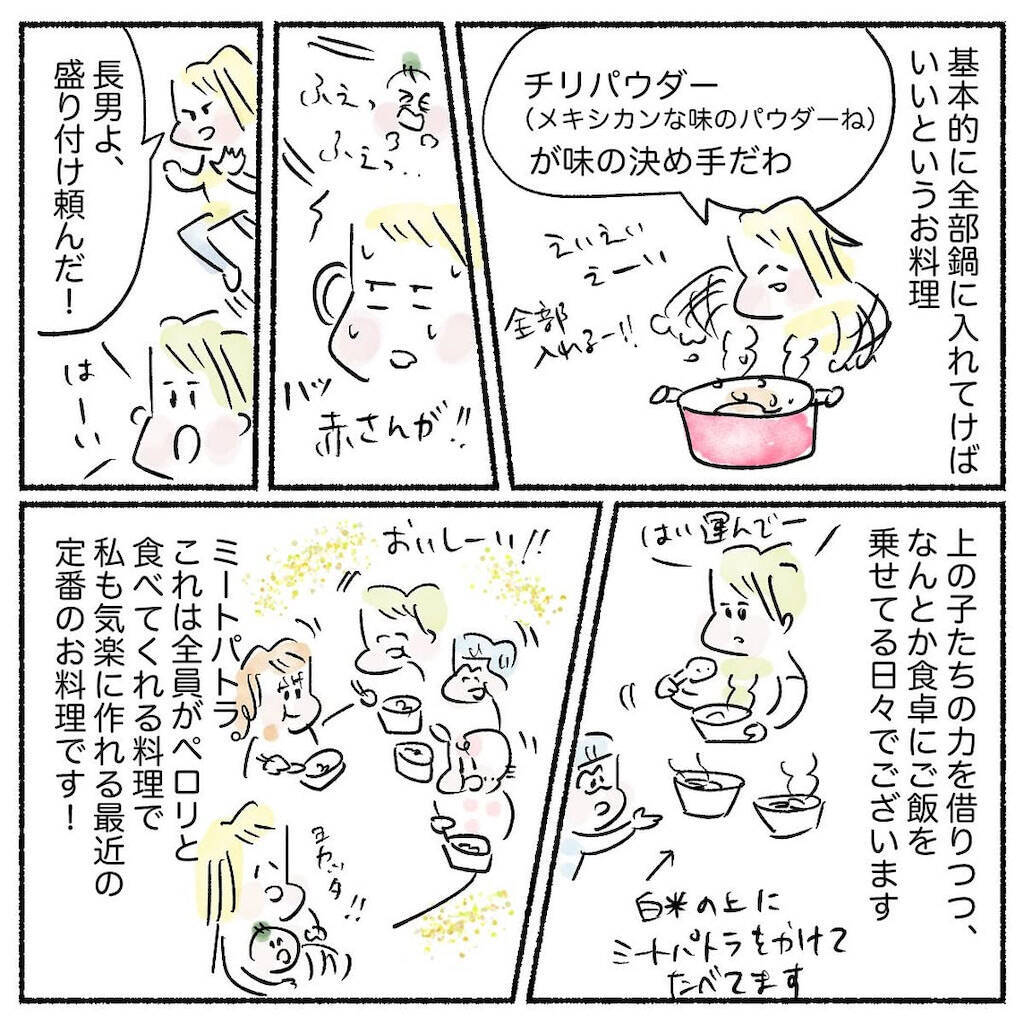 基本的に全部鍋に入れてけば
いいというお料理
チリパウダー
（メキシカンな味のパウダーね）
が味の決め手だわ
えいえい
えーい
全部
入れるー!!
ふぇっ
ふぇっ…
ハッ
赤さんが!!
長男よ、
盛り付け頼んだ！
はーい
上の子たちの力を借りつつ、
なんとか食卓にご飯を
乗せてる日々でございます
はい運んでー
白米の上に
ミートパトラをかけて
たべてます
おいしーい!!
ミートパトラ。
これは全員がペロリと
食べてくれる料理で
私も気楽に作れる最近の
定番のお料理です！
ヨカッタ!!